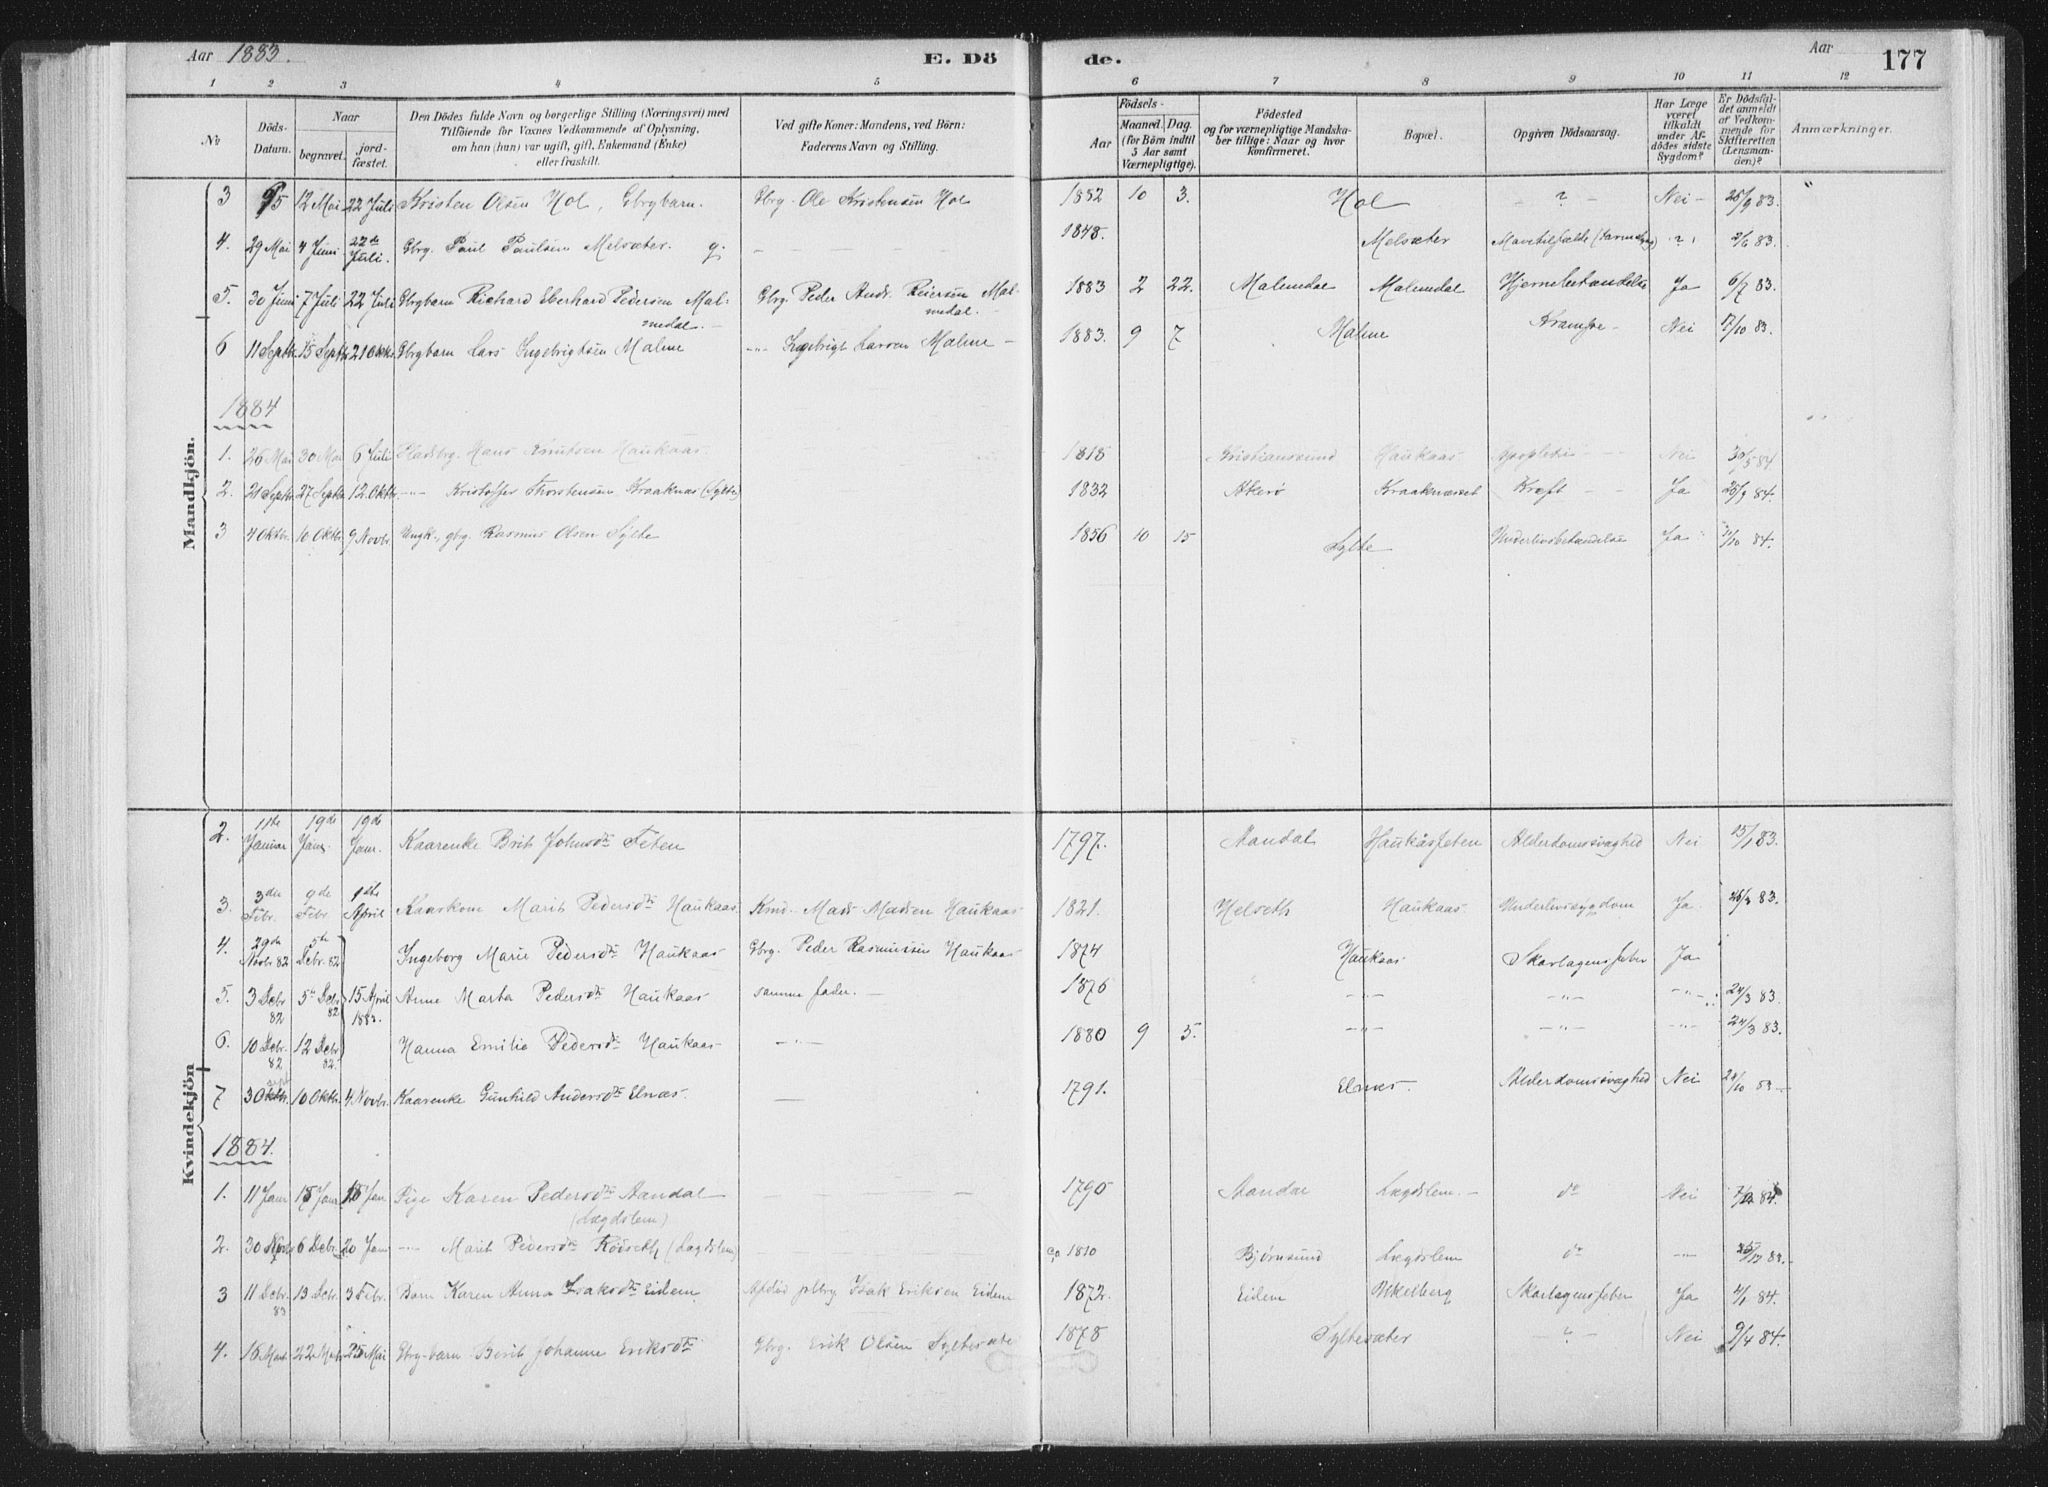 Aar 1883. E. Dö
1 2 3 4 5
No
Döds-Datum.
Naar
begravet. jordfæstet.
Den Dödes fulde Navn og borgerlige Stilling (Næringsvei) med
Tilföiende for Voxnes Vedkommende af Oplysning,
om han (hun) var ugift, gift, Enkemand (Enke)
eller fraskilt.
Ved gifte Koner: Mandens, ved Börn:
Faderens Navn og Stilling.
de. Aar 177
6 7 8 9 10 11 12
Födsels-
Aar
Maaned. Dag.
(for Börn indtil 5 Aar samt Værnepligtige).
Födested
og for værnepligtige Mandskaber tillige: Naar og hvor konfirmeret.
Bopæl.
Opgiven Dödsaarsag.
Har Læge været tilkaldt under Afdödes sidste Sygdom?
Er Dödsfaldet anmeldt af Vedkommende for Skifteretten (Lensmanden)?
Anmærkninger.
Mandkjön.
3 12 Mai 22 Juli Kristen Olsen Hol, Gbrgbarn. Gbrg. Ole Kristensen Hol 1882 10 3. Hol ? Nei
4. 29 Mai 4 Juni 22de Juli. Gbrg. Paul Paulsen Melsæter. g. 1848. Melsæter ? 2/6 83.
5. 30 Juni 7 Juli 22 Juli Gbrgbarn Richard Eberhard Pedersen Malmedal. Gbrg. Peder Andr. Reiersen Malmedal. 1883 2 22. Malmedal Malmedal Hjernebetændelse Ja 6/7 83.
6 11 Septbr 15 Septbr 21 Oktbr. Gbrgbarn Lars Ingebrigtsen Malme -"- Ingebrigt Larsen Malme 1883. 9 7 Malme Krampe Nei 7/10 83.
1884
1. 26 Mai 30 Mai 6 Juli Pladsbrg. Hans Knutsen Haukaas 1818 Kristianssund Haukaas Apoplexi Nei 30/5 84
2. 21 Septbr 27 Septbr 12. Oktbr -"- Kristoffer Thorstensen Kraaknæs (Sylte) 1832 Akerø Kraaknæsset Kræft Ja 25/9 84.
3 4 Oktbr. 10 Oktbr. 9 Novbr. Ungk., gbrg. Rasmus Olsen Sylte 1856 10 15 Sylte Underlivsbetændelse Ja 11/10 84.
Kvindekjön
2. 11te Januar 19de Janr. 19de Janr. Kaarenke Brit Johnsdtr Feten 1797. Aandal Haukåsfeten Alderdomssvaghed Nei 15/1 83.
3. 3die Febr. 9de Febr. 1ste April Kaarkone Marit Pedersdtr Haukaas. Mads Madsen Haukaas 1821. Helseth Haukaas Underlivssygdom Ja
4. 29de Novbr 82 5te Debr. 82 Ingeborg Marie Pedersdtr Haukaas Gbrg. Peder Rasmussen Haukaas 1874 Haukaas Skarlagensfeber Ja
5. 3 Debr 82 5te Debr 82 15 April 1883. Anne Marta Pedersdtr Haukaas samme fader. 1876 -"- -"- -"- 24/3 83.
6. 10 Debr. 82 12 Debr 82. Hanna Emilie Pedersdtr Haukaas -"- 1880 9 5. -"- -"- -"- 24/3 83.
7 3 Oktbr. 10 Oktbr. 4 Novbr. Kaarenke Gunhild Andersdtr Elnæs. 1791. Elnæs. Alderdomssvaghed Nei 24/10 83
1884.
1. 11 Janr 18 Janr Jan Pige Karen Pedersdtr Aandal (Lægdslem) 1790 Aandal Lægdslem. do Nei
2. 30 Novbr 6 Debr. 20 Jan -"- Marit Pedersdtr Rødseth (Lægdslem) ca 1810 Bjørnsund Lægdslem do -"-
3 11 Debr. 83 13 Debr. 3 Febr. Barn Karen Anna Isaksdtr Eidem. Afdød Isak Eriksen Eidem 1872. Eidem Ukelberg Skarlagensfeber Ja 4/1 84.
4. 16 Marts 22 Marts 25 Mai Gbrg-barn Berit Johanne Eriksdtr Gbrg. Erik Olsen Syltesæte 1878 Syltesæter ? Nei 9/4 84.